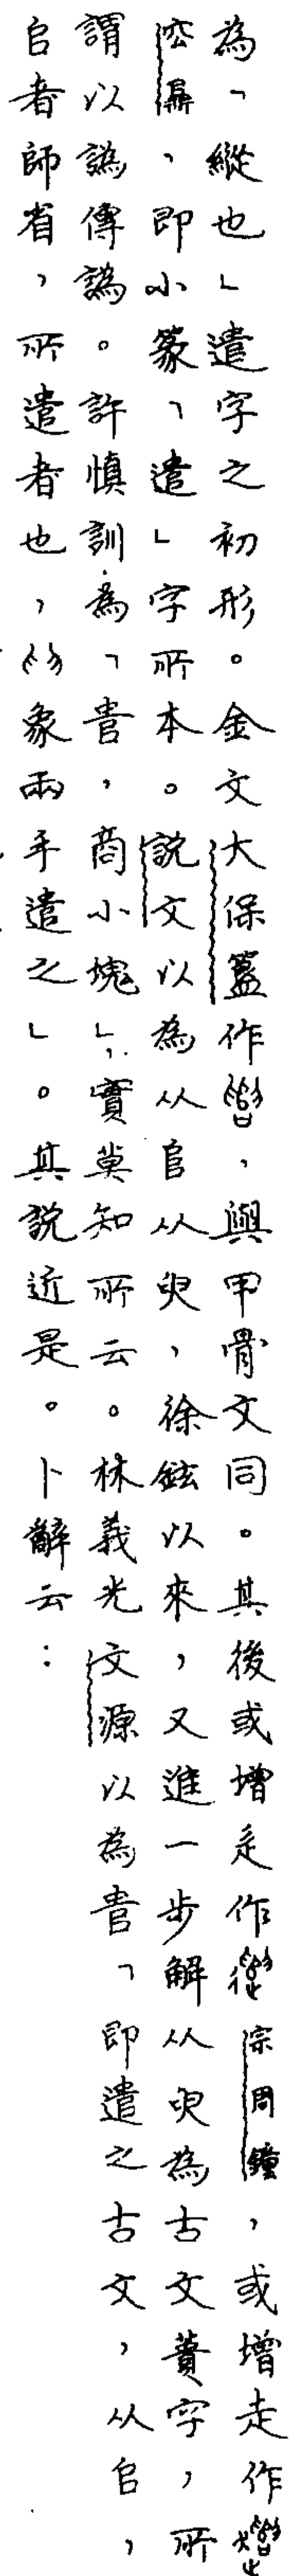 為「縱也」遣字之初形。金文大保簋作，與甲骨文同。其後或增辵作宗周鐘，或增走作
，即小篆「遣」字所本。說文以為从𠂤从臾，徐鉉以來，又進一步解从臾為古文蕢字，所
謂以譌傳譌。許慎訓為「𠳋，商小塊」，實莫知所云。林義光文源以為𠳋「即遣之古文，从𠂤，
𠂤者師省，所遣者也，象兩手遣之」。其說近是。卜辭云：